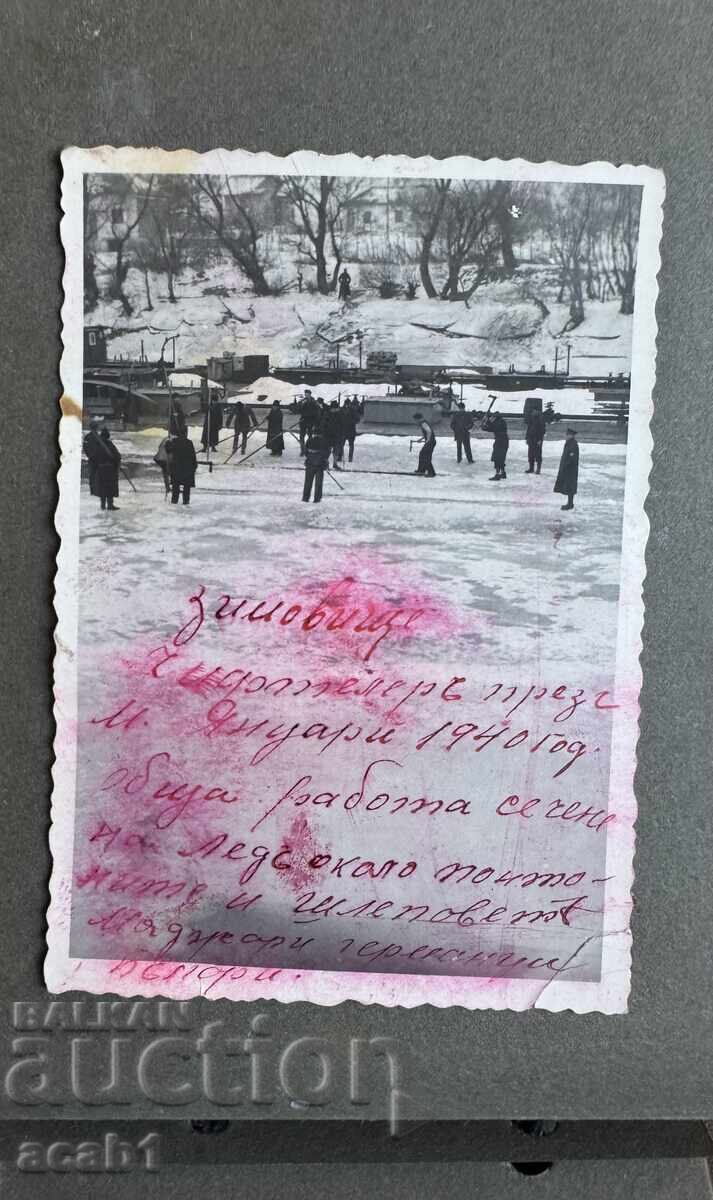 зимовище
презъ
м. Януари 1940 год.
обща работа сечене
на ледъ около понто-
ните и шлеповетѣ
маджари германци
българи.
BALKAN
auction
acab1